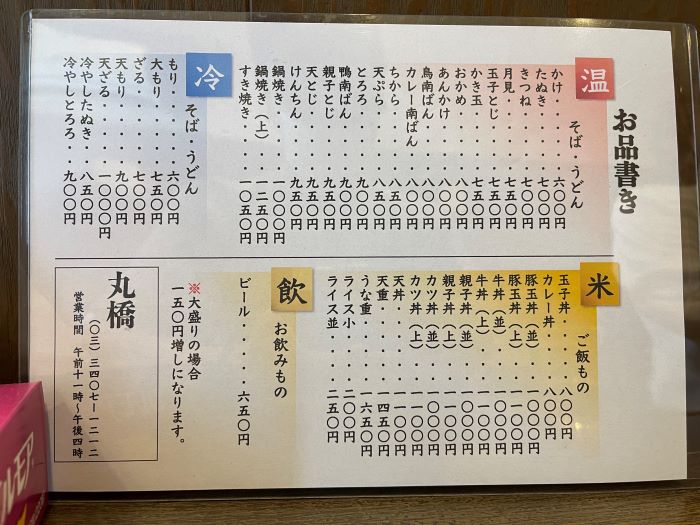 お品書き
温
そば・うどん
かけ・・・・六〇〇円
たぬき・・・七〇〇円
きつね・・・七〇〇円
月見・・・・七五〇円
玉子とじ・・七五〇円
かき玉・・・七五〇円
おかめ・・・八〇〇円
あんかけ・・八〇〇円
鳥南ばん・・八〇〇円
カレー南ばん 八〇〇円
ちから・・・八五〇円
天ぷら・・・八五〇円
とろろ・・・九〇〇円
鴨南ばん・・九〇〇円
親子とじ・・九五〇円
天とじ・・・九五〇円
けんちん・・九五〇円
鍋焼き・・・一〇〇〇円
鍋焼き（上）・一二五〇円
すき焼き・・一〇五〇円
冷
そば・うどん
もり・・・・六〇〇円
大もり・・・七五〇円
ざる・・・・七〇〇円
天もり・・・九〇〇円
天ざる・・・一〇〇〇円
冷やしたぬき・八五〇円
冷やしとろろ・九〇〇円
米
ご飯もの
玉子丼・・・・八〇〇円
カレー丼・・・八〇〇円
豚玉丼（並）・一〇〇〇円
豚玉丼（上）・一一〇〇円
牛丼（並）・・一〇〇〇円
牛丼（上）・・一一〇〇円
親子丼（並）・一〇〇〇円
親子丼（上）・一一〇〇円
カツ丼（並）・一〇〇〇円
カツ丼（上）・一一〇〇円
天丼・・・・一一〇〇円
天重・・・・一四五〇円
うな重・・・一六五〇円
ライス小・・・二〇〇円
ライス並・・・二五〇円
飲
お飲みもの
ビール・・・・・六五〇円
※大盛りの場合
一五〇円増しになります。
丸橋
（〇三）三四〇七ー一二一二
営業時間 午前十一時〜午後四時